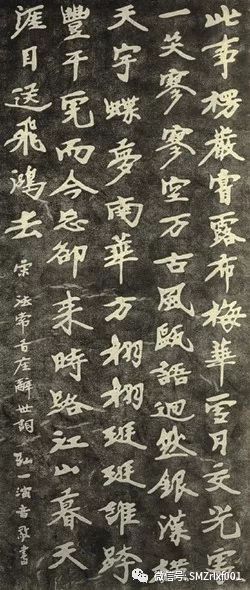 此事楞嚴嘗露布梅華雪月交光處
一笑寥寥空万古風甌語迥然銀漢橫
天宇蝶夢南華方栩栩班班誰跨
豐干虎而今忘卻來時路江山暮天
涯目送飛鴻去
宋法常首座辭世詞 弘一演音敬書
微信号: SMZrlxf001